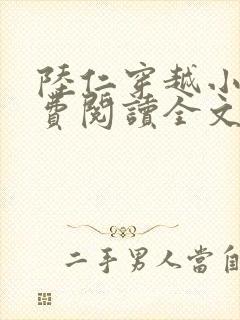 陸仁穿越小
費閱讀全文
二手男人當自